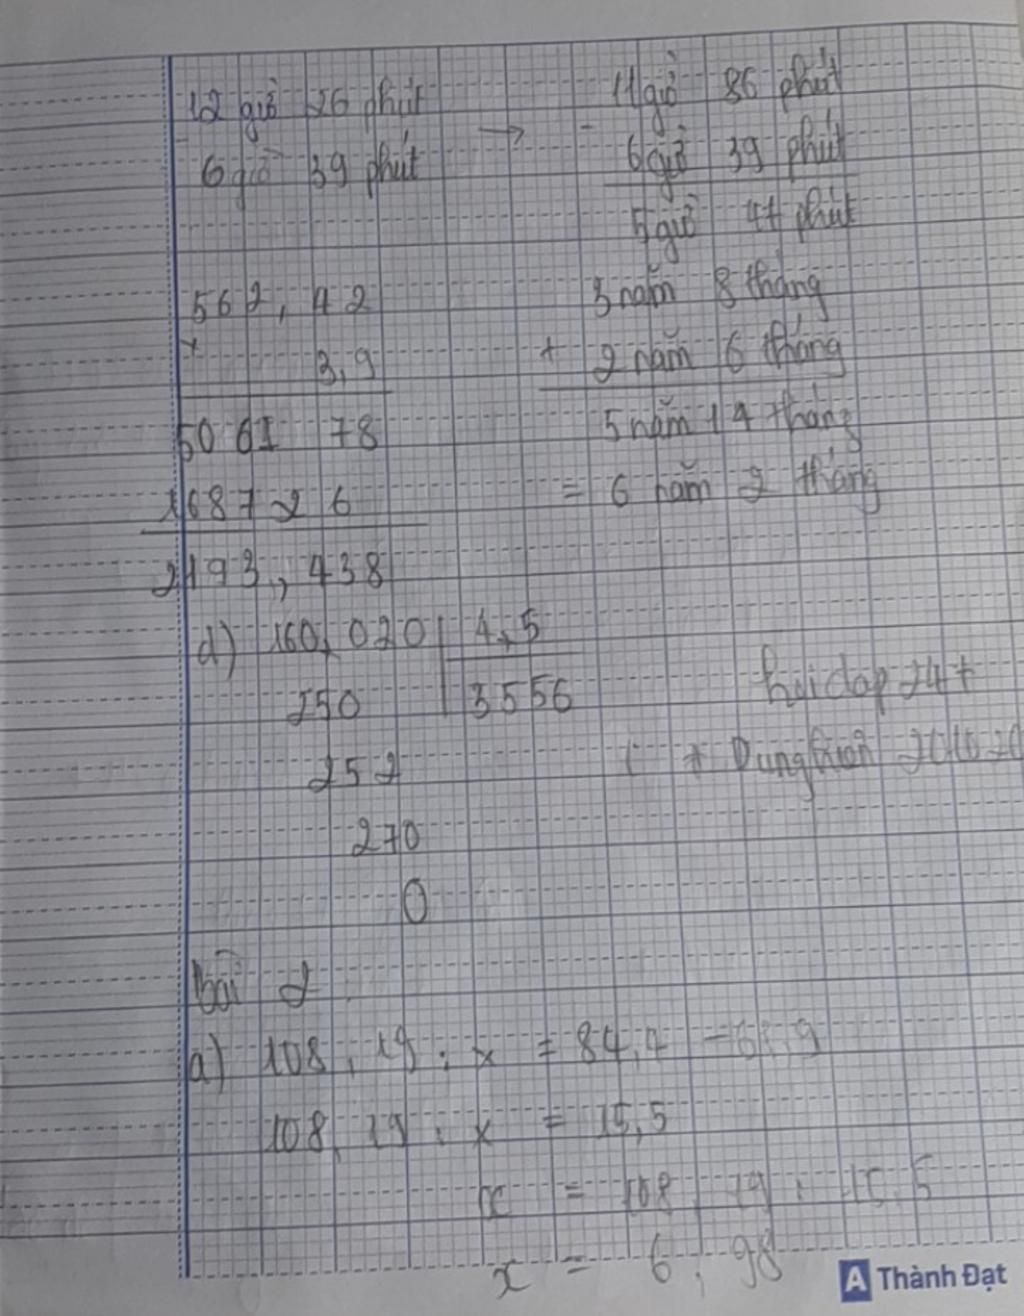 12 giờ 26 phút → - 11 giờ 86 phút
6 giờ 39 phút 6 giờ 39 phút
5 giờ 47 phút
562,42
×
3,9
5061 78
1687 2 6
2193,438
3 năm 8 tháng
+ 2 năm 6 tháng
5 năm 14 tháng
= 6 năm 2 tháng
d) 160,020 4,5
250 3556
252
270
0
hoidap 24+
bài 2
a) 108,19 : x = 84,4 - 68,9
108,19 : x = 15,5
x = 108,19 : 15,5
x = 6,98
A Thành Đạt